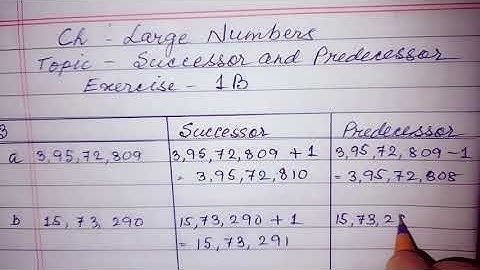 Ch :- Large Numbers
Topic - Successor and Predecessor
Exercise - 1B
3 Successor Predecessor
a 3,95,72,809 3,95,72,809 + 1 3,95,72,809-1
= 3,95,72,810 = 3,95,72,808
b 15,73,290 15,73,290 + 1 15,73,2
= 15,73,291